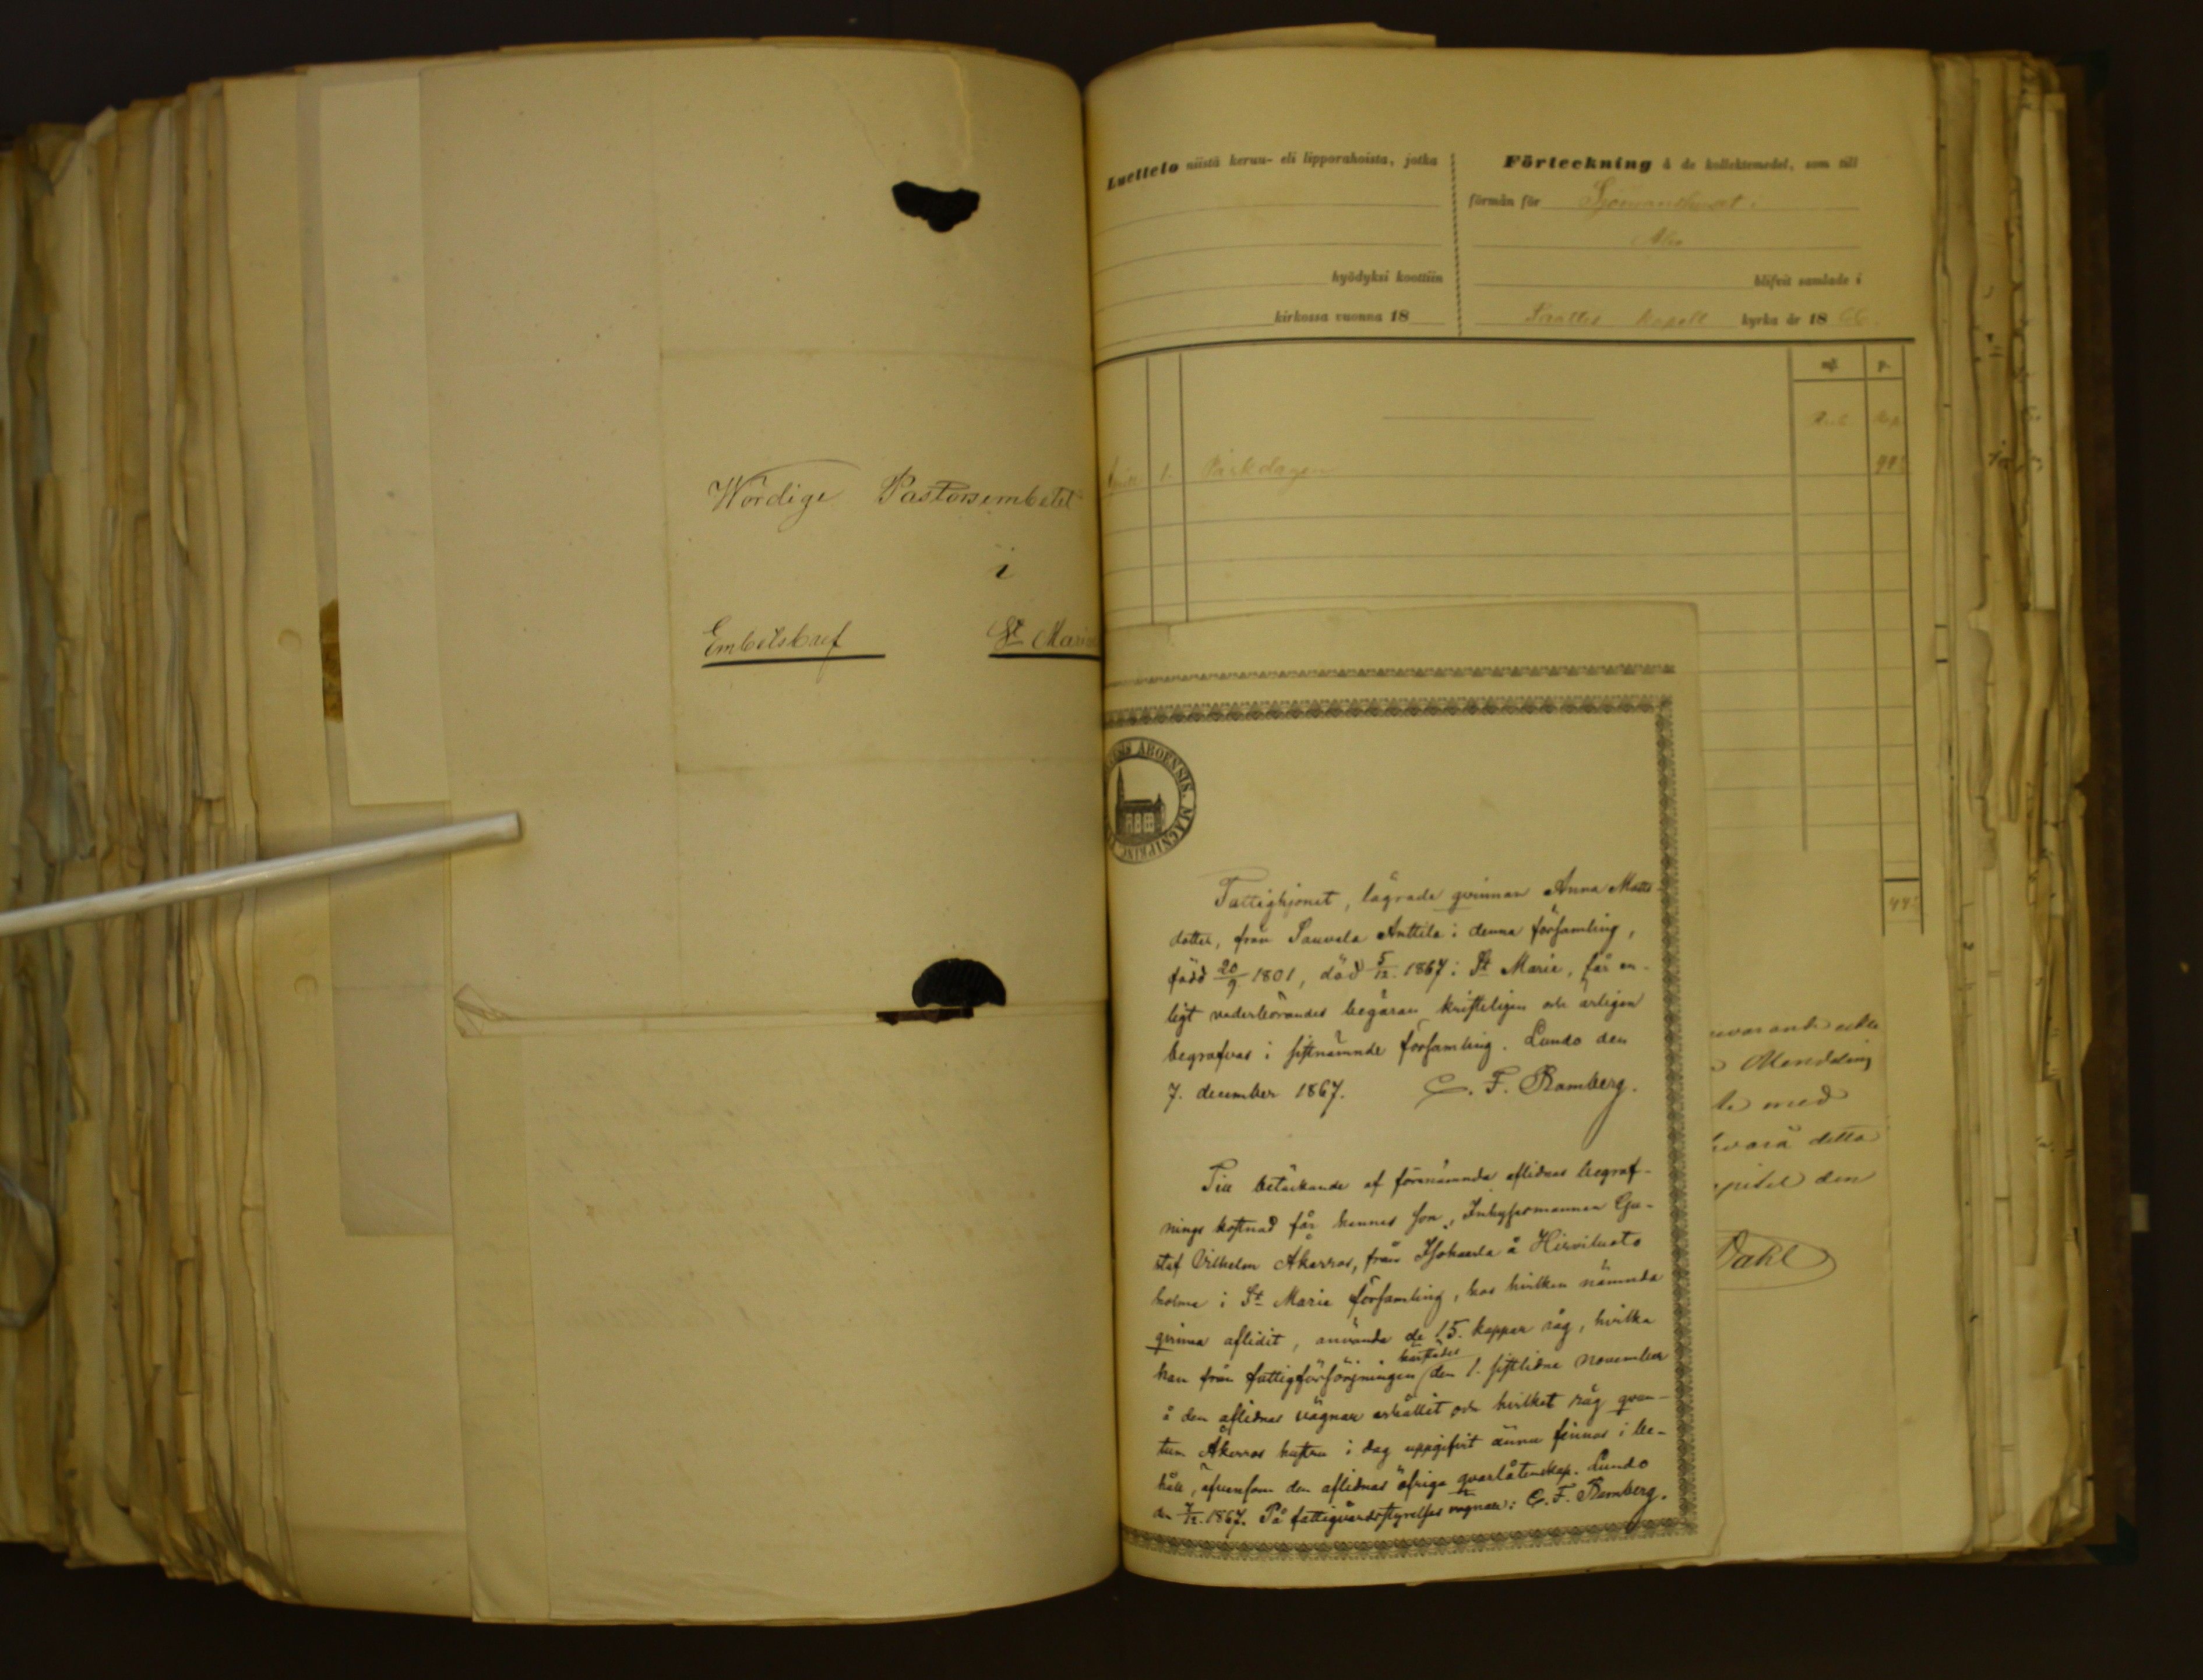 Wördige Pastorsembetet
i
Embetsbref St Marie
Luettelo niistä keruu- eli lipporahoista, jotka
hyödyksi koottiin
kirkossa vuonna 18
Förteckning å de kollektemedel, som till
förmån för Sjömanshuset i
Åbo
blifvit samlade i
kapell kyrka år 18 66.
mf. p.
Rub. Kop.
1. Påskdagen
ABOENSIS. MAGNI PRINC
Fattighjonet, lägrade qvinnan Anna Matts-
dotter, från Sauvala Anttila i denna församling,
född 20/9 1801, död 5/12 1867 i St Marie, får en-
ligt vederbörandes begäran kristeligen och ärligen
begrafvas i sistnämnde församling. Lundo den
7. december 1867. C. F. Ramberg.
Till betäckande af förenämnda aflidnas begraf-
nings kostnad får hennes son, Inhysesmannen Gu-
staf Vilhelm Åkerros, från Isokaerla å Hirviluoto
holme i St Marie församling, hos hvilken nämnda
qvinna aflidit, använda de 15. kappar råg, hvilka
han från fattigförsörjningen härstädes den 1. sistlidne november
å den aflidnas vägnar erhållit och hvilket råg qvan-
tum Åkerros hustru i dag uppgifvit ännu finnas i be-
håll, äfvensom den aflidnas öfriga qvarlåtenskap. Lundo
den 7/12 1867. På fattigvårdsstyrelses vägnar: C. F. Ramberg.
med
detta
den
Dahl